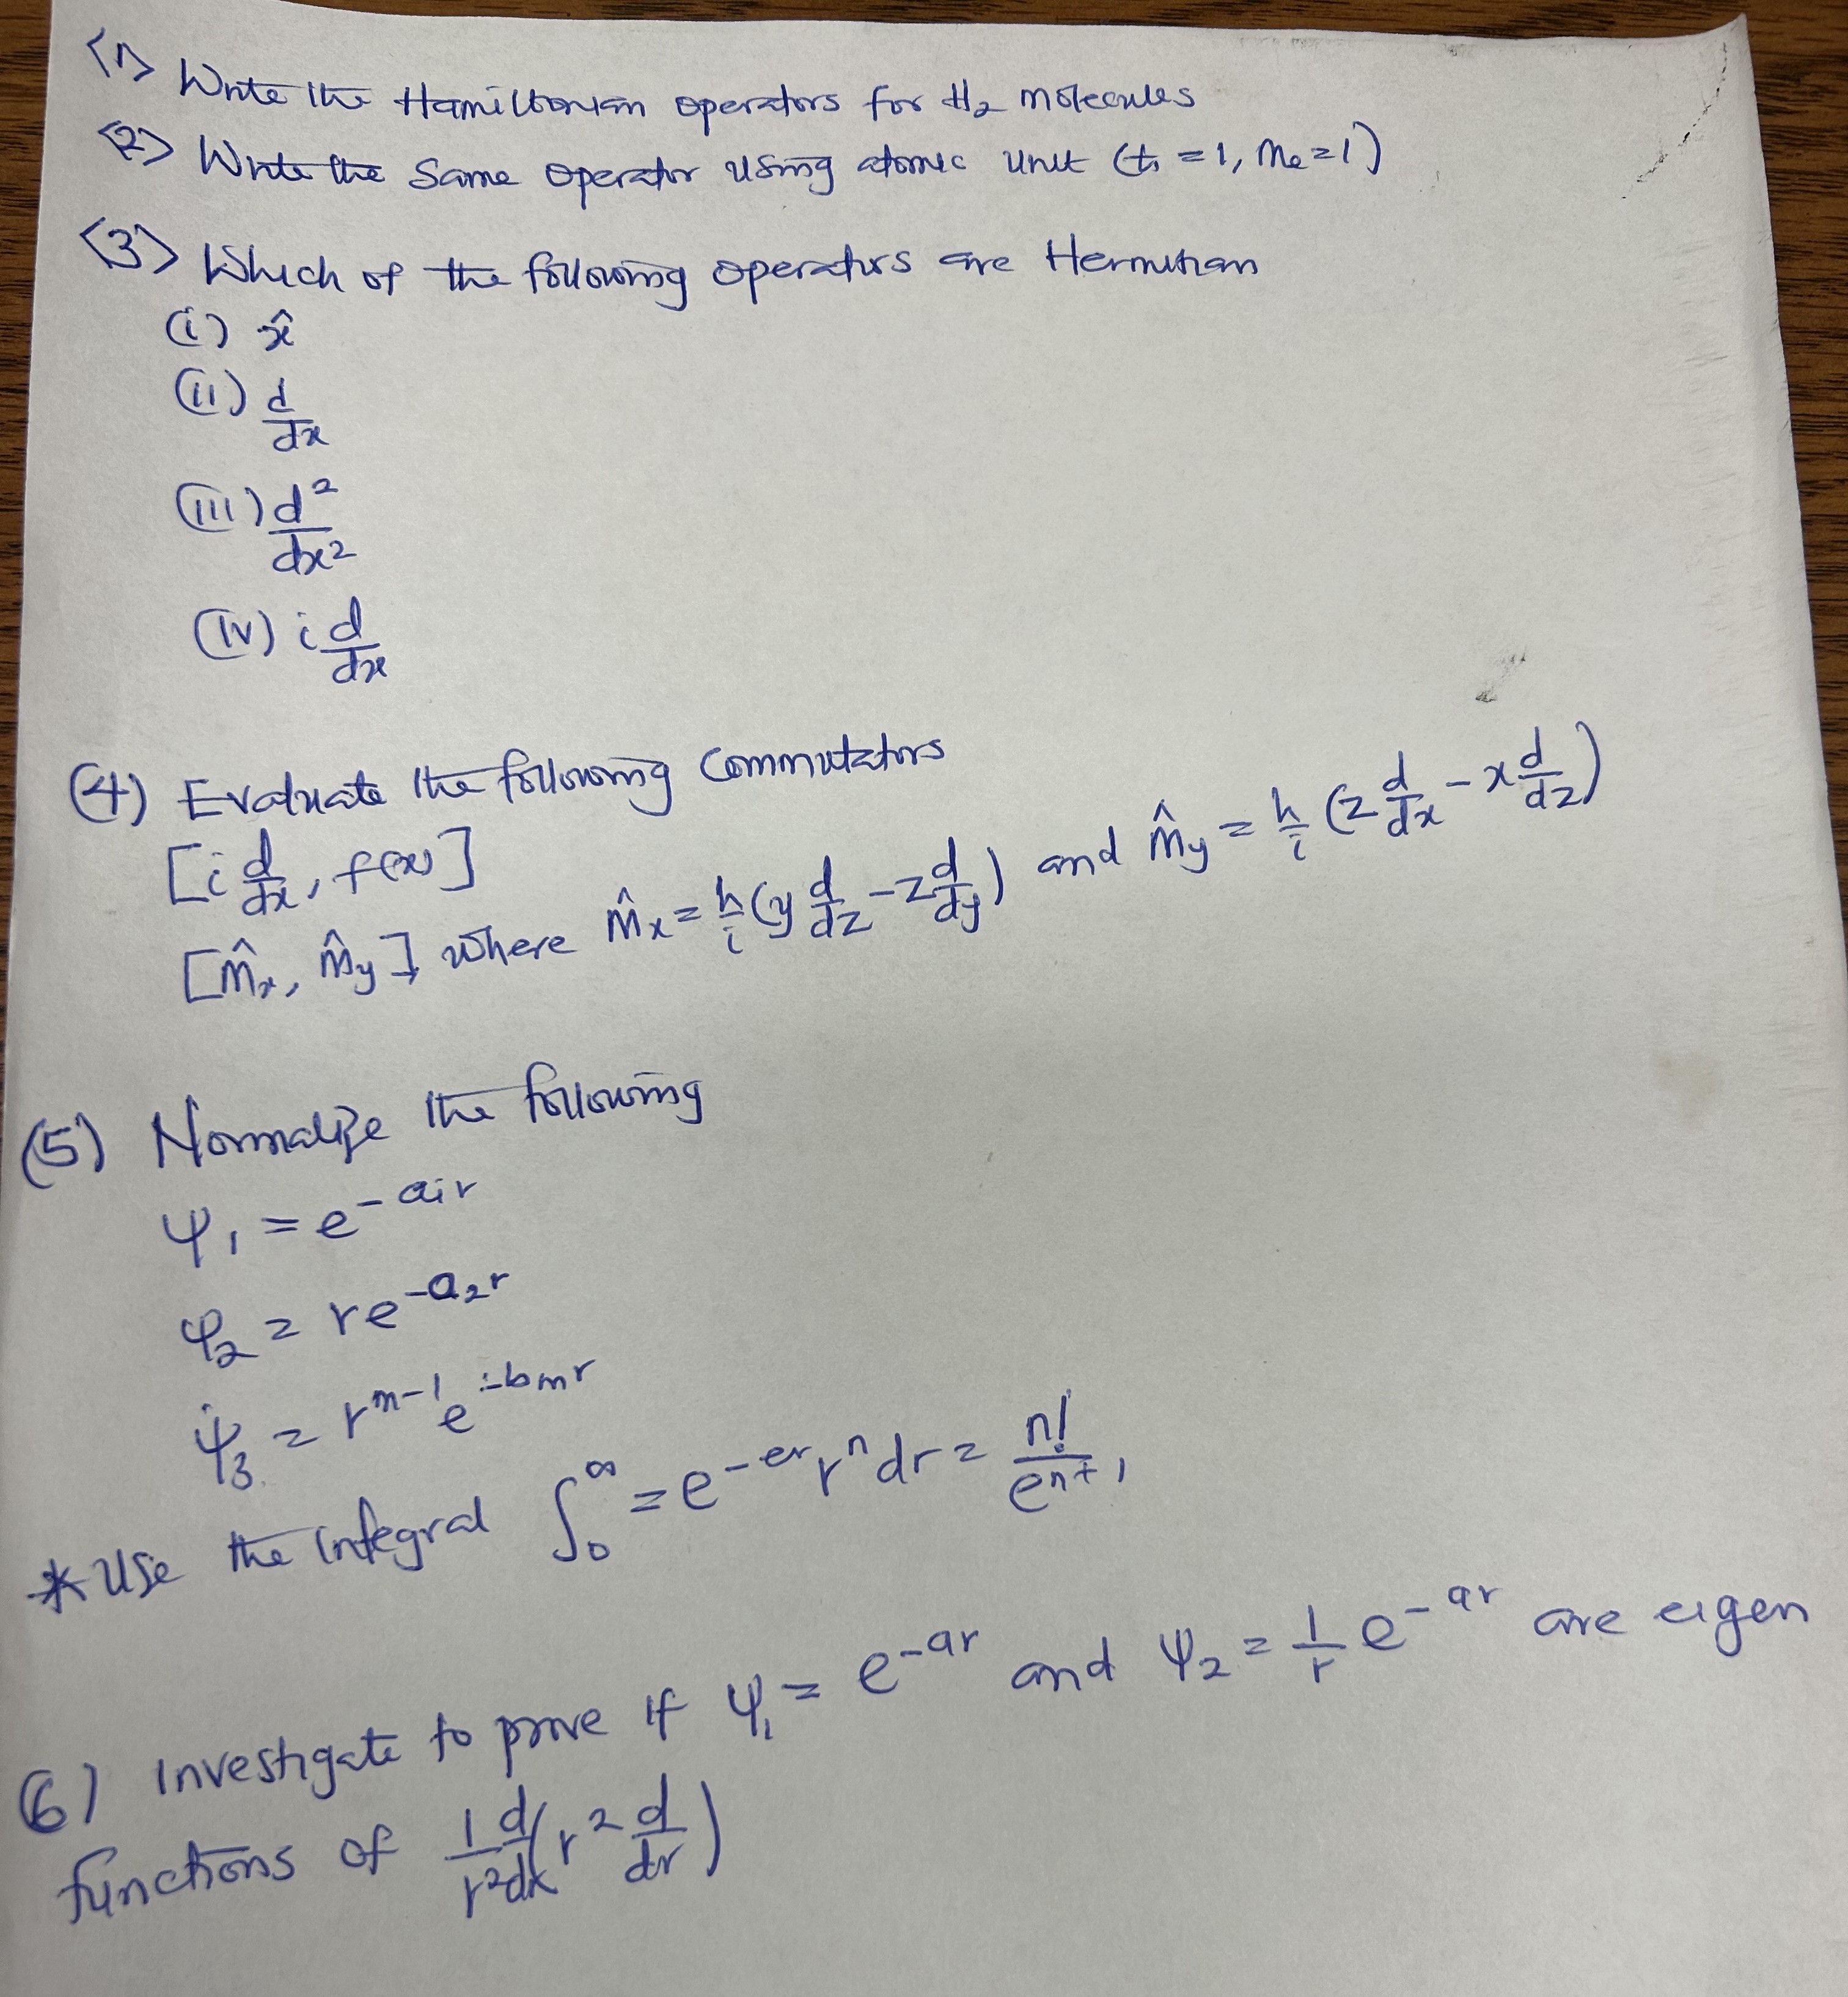 (1) Write the Hamiltonian operators for H₂ molecules
(2) Write the same operator using atomic unit (ħ = 1, mₑ = 1)
(3) Which of the following operators are Hermitian
(i) x̂
(ii) d/dx
(iii) d²/dx²
(iv) i d/dx
(4) Evaluate the following commutators
[i d/dx, f(x)]
[m̂x, m̂y] where m̂x = h/i (y d/dz - z d/dy) and m̂y = h/i (z d/dx - x d/dz)
(5) Normalize the following
ψ₁ = e^-a₁r
φ₂ = re^-a₂r
ψ₃ = r^m-1 e^-bmr
* Use the integral ∫₀^∞ = e^-er rⁿ dr = n!/e^n+1
(6) Investigate to prove if ψ₁ = e^-ar and ψ₂ = 1/r e^-ar are eigen
functions of 1/r² d/dx (r² d/dr)